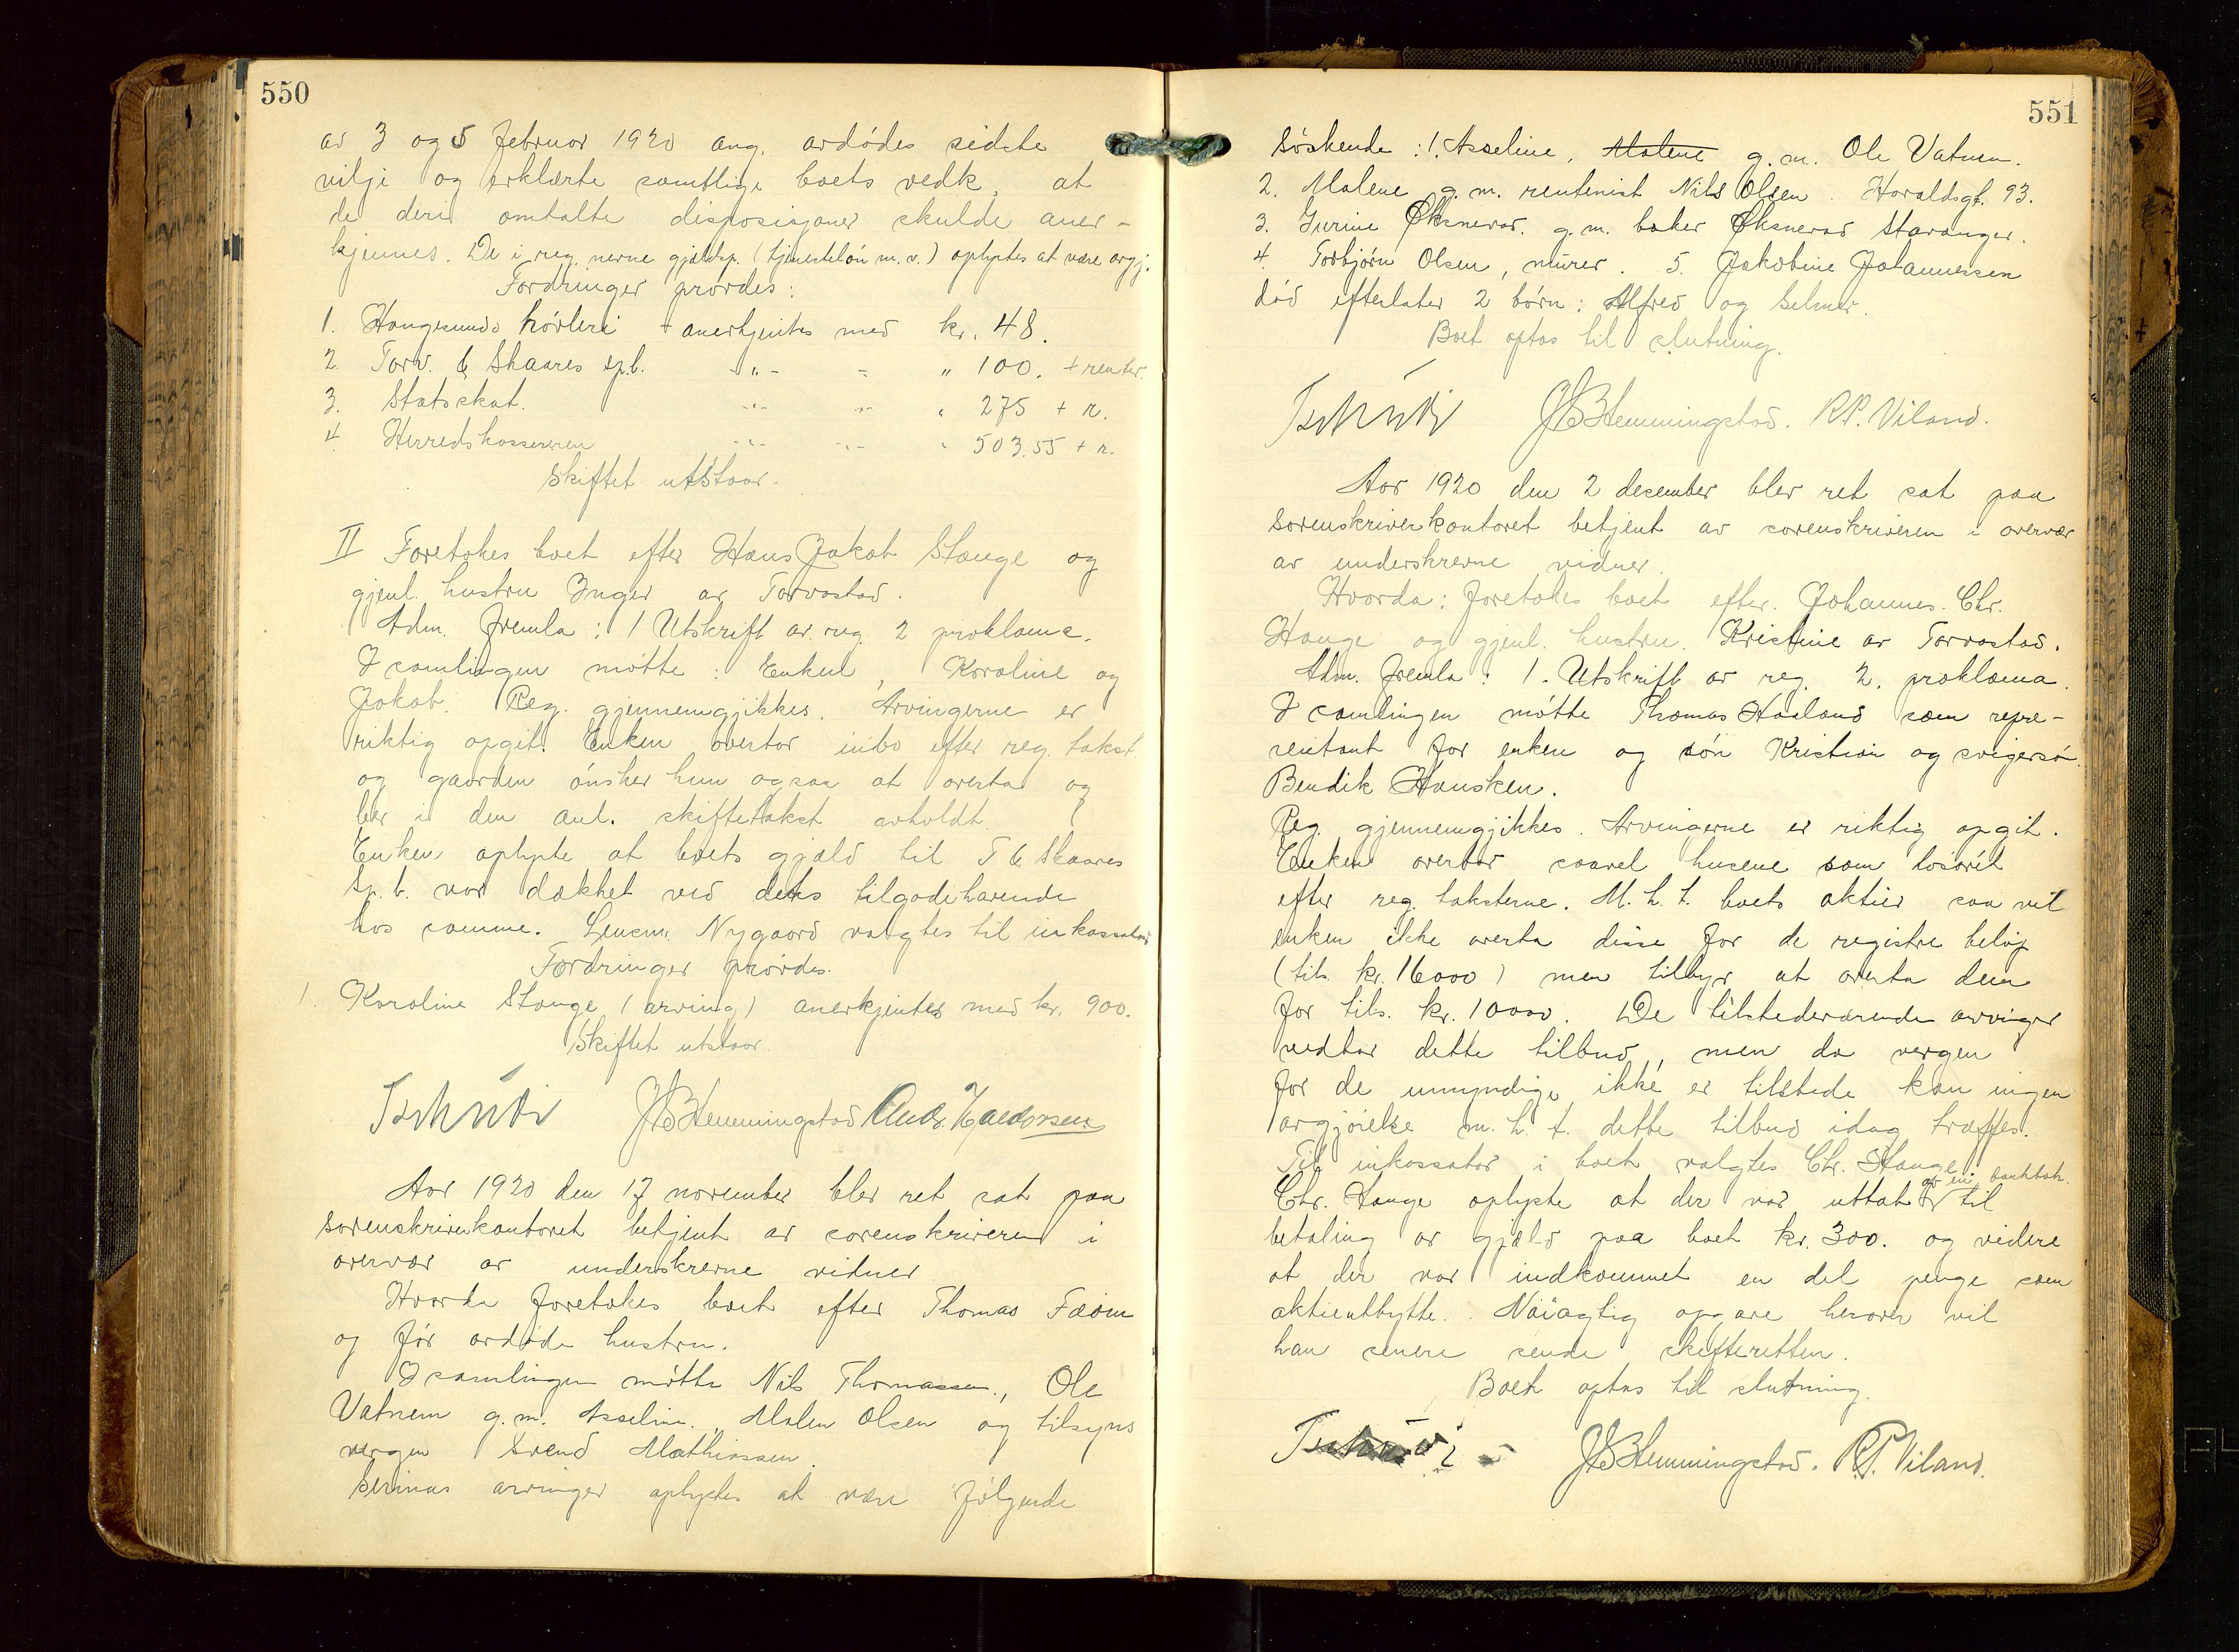 550
av 3 og 5 februar 1920 ang. avdødes sidste
vilje og erklærte samtlige boets vedk. at
de deri omtalte disposisjoner skulde aner-
kjennes. De i reg. nevne gjeldsp. (tjenesteløn m.v.) oplystes at være avgj.
Fordringer prøvdes:
1. Haugesunds høvleri - anerkjentes med kr. 48.
2. Torv. & Skaares sp.b. -"- = " 100. + renter.
3. Statsskat. -"- -"- " 275 + r.
4. Herredskassereren -"- -"- " 503.55 + r.
Skiftet utstaar.
II Foretokes boet efter Hans Jakob Stange og
gjenl. hustru Inger av Torvastad.
Adm. fremla: 1 Utskrift av reg. 2 proklama.
I samlingen møtte: Enken, Karoline og
Jakob. Reg. gjennemgikkes. Arvingerne er
riktig opgit. Enken overtar inbo efter reg. takst
og gaarden ønsker hun ogsaa at overta og
ber i den anl. skiftetakst avholdt.
Enken oplyste at boets gjæld til T & Skaares
Sp.b. var dækket ved dets tilgodehavende
hos samme. Lensm. Nygaard valgtes til inkassator
Fordringer prøvdes.
1. Karoline Stange (arving) anerkjentes med kr. 900.
Skiftet utstaar.
Tschudi JB Hemmingstad Andr. Haldorsen
Aar 1920 den 17 november blev ret sat paa
sorenskriverkontoret betjent av sorenskriveren i
overvær av underskrevne vidner
Hvorda foretokes boet efter Thomas Fæøen
og før avdøde hustru.
I samlingen møtte Nils Thomassen, Ole
Vatnem g.m. Asseline, Malen Olsen og tilsyns
vergen Svend Mathiassen.
Serinas arvinger oplystes at være følgende
551
Søskende: 1. Asseline, Malene g.m. Ole Vatnem.
2. Malene g.m. rentenist Nils Olsen. Haraldsgt. 93.
3. Jurine Øksnevad. g.m. baker Øksnevad Stavanger.
4. Torbjørn Olsen, murer. 5. Jakobine Johannessen
død efterlater 2 børn: Alfred og Selmer.
Boet optas til slutning.
Tschudi JB Hemmingstad. R.P. Viland.
Aar 1920 den 2 desember blev ret sat paa
sorenskriverkontoret betjent av sorenskriveren i overvær
av underskrevne vidner.
Hvorda: foretokes boet efter Johannes Chr.
Hauge og gjenl. hustru Kristine av Torvastad.
Adm. fremla: 1. Utskrift av reg. 2. proklama.
I samlingen møtte Thomas Haaland som repre-
sentant for enken og søn Kristian og svigersøn
Bendik Hausken.
Reg. gjennemgjikkes. Arvingerne er riktig opgit.
Enken overtar saavel husene som løsøret
efter reg. taksterne. M.h.t. boets aktier saa vil
enken ikke overta disse for de registre beløp
(tils. kr. 16000) men tilbyr at overta dem
for tils. kr. 10000. De tilstedeværende arvinger
vedtar dette tilbud, men da vergen
for de umyndige ikke er tilstede kan ingen
avgjørelse m.h.t. dette tilbud idag træffes.
Til inkassator i boet valgtes Chr. Hauge
av en bankbok.
Chr. Hauge oplyste at der var uttat til
betaling av gjæld paa boet kr. 300. og videre
at der var indkommet en del penge som
aktieutbytte. Nøiagtig opgave herover vil
han senere sende skifteretten.
Boet optas til slutning.
Tschudi JB Hemmingstad. R.P. Viland.